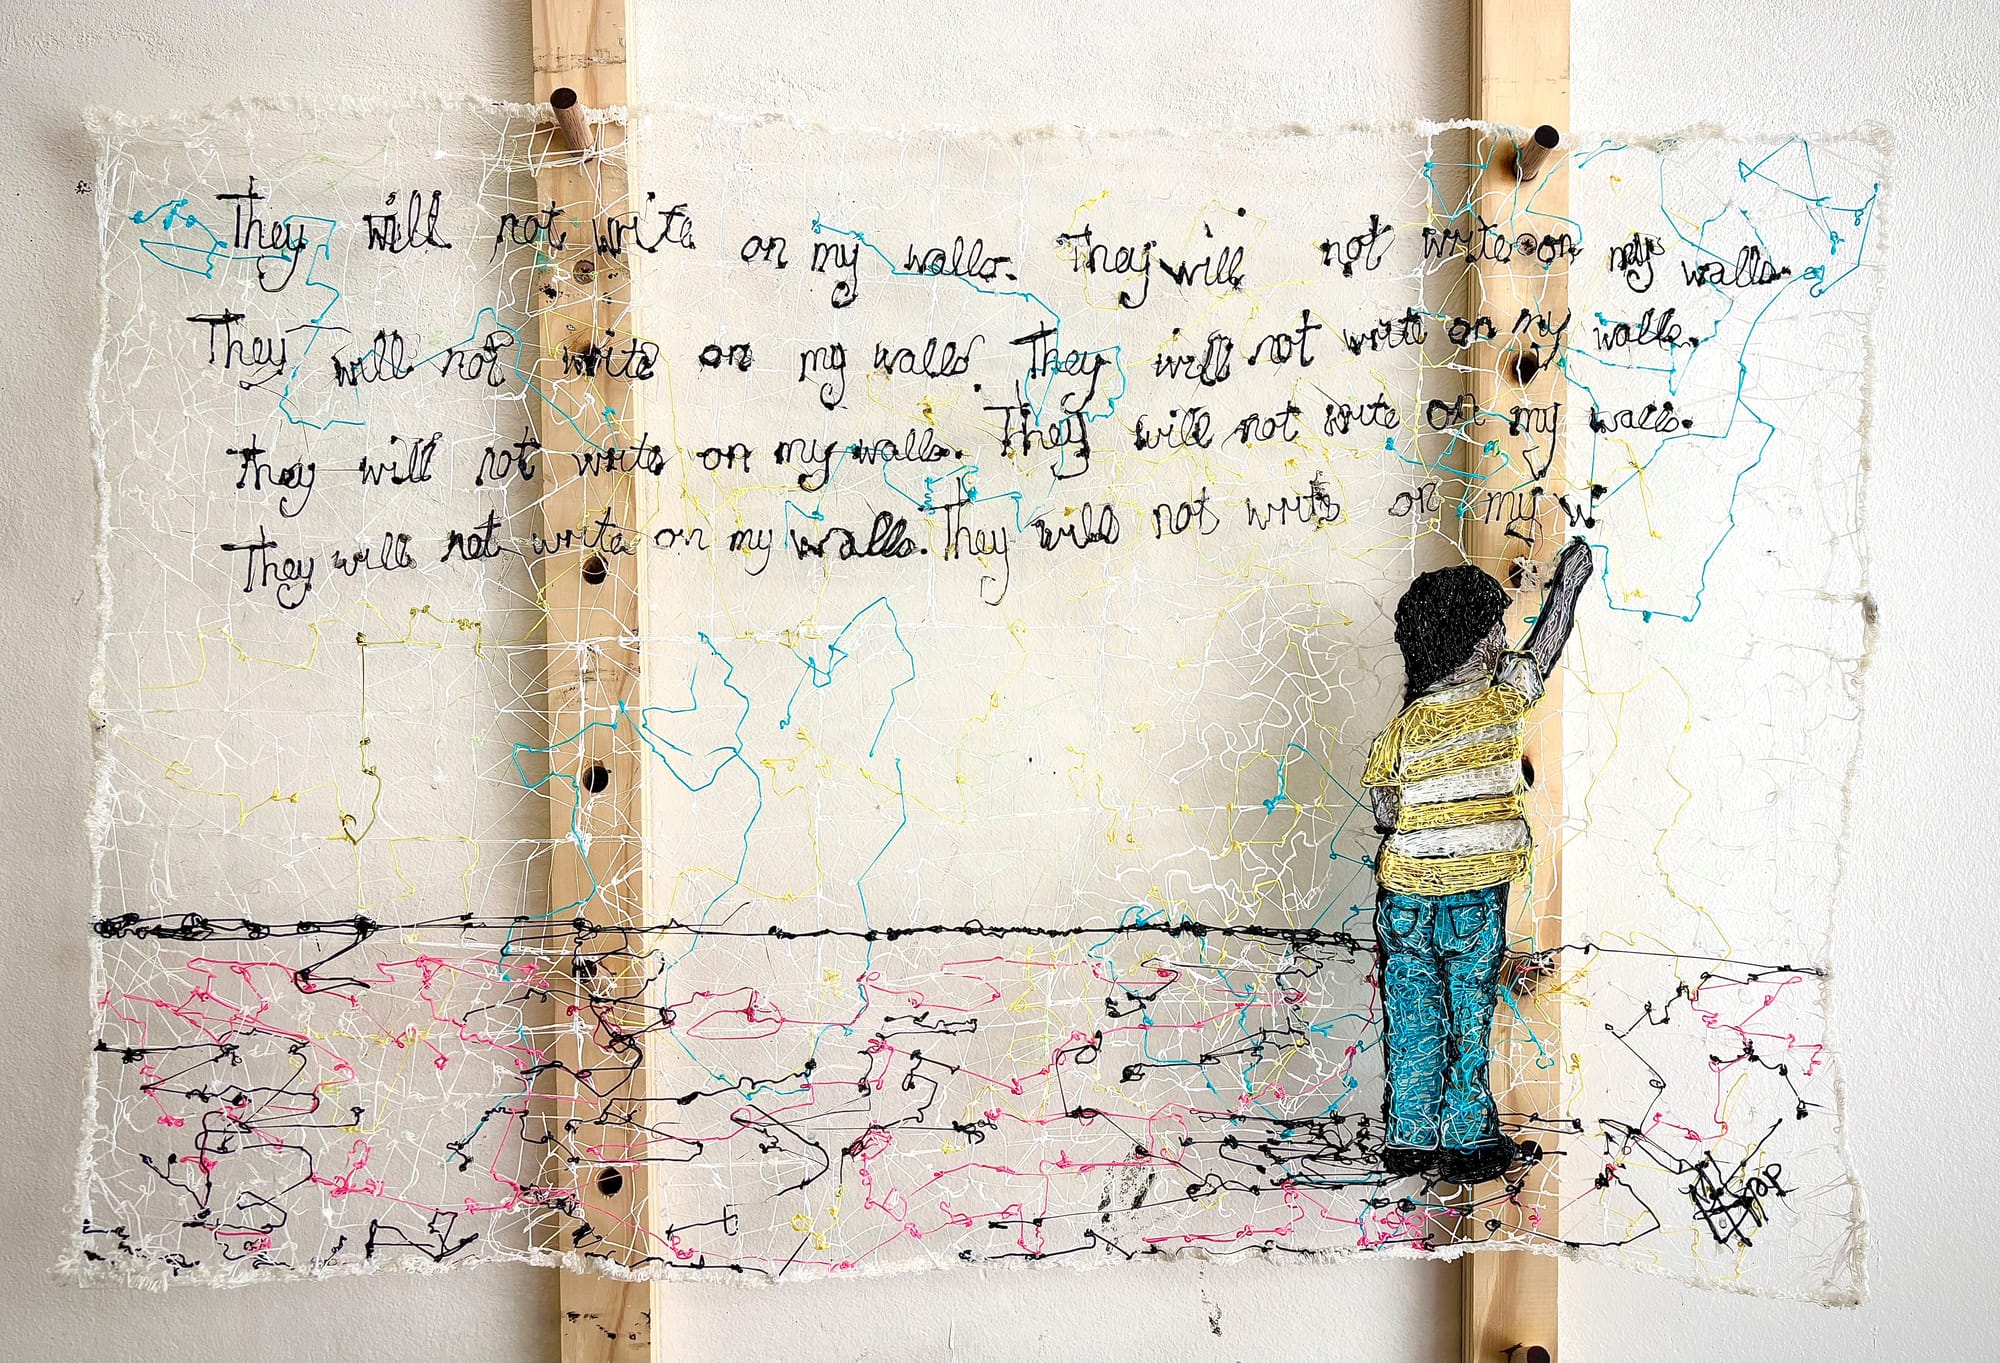 They will not write on my walls. They will not write on my walls.
They will not write on my walls. They will not write on my walls.
They will not write on my walls. They will not write on my walls.
They will not write on my walls. They will not write on my w